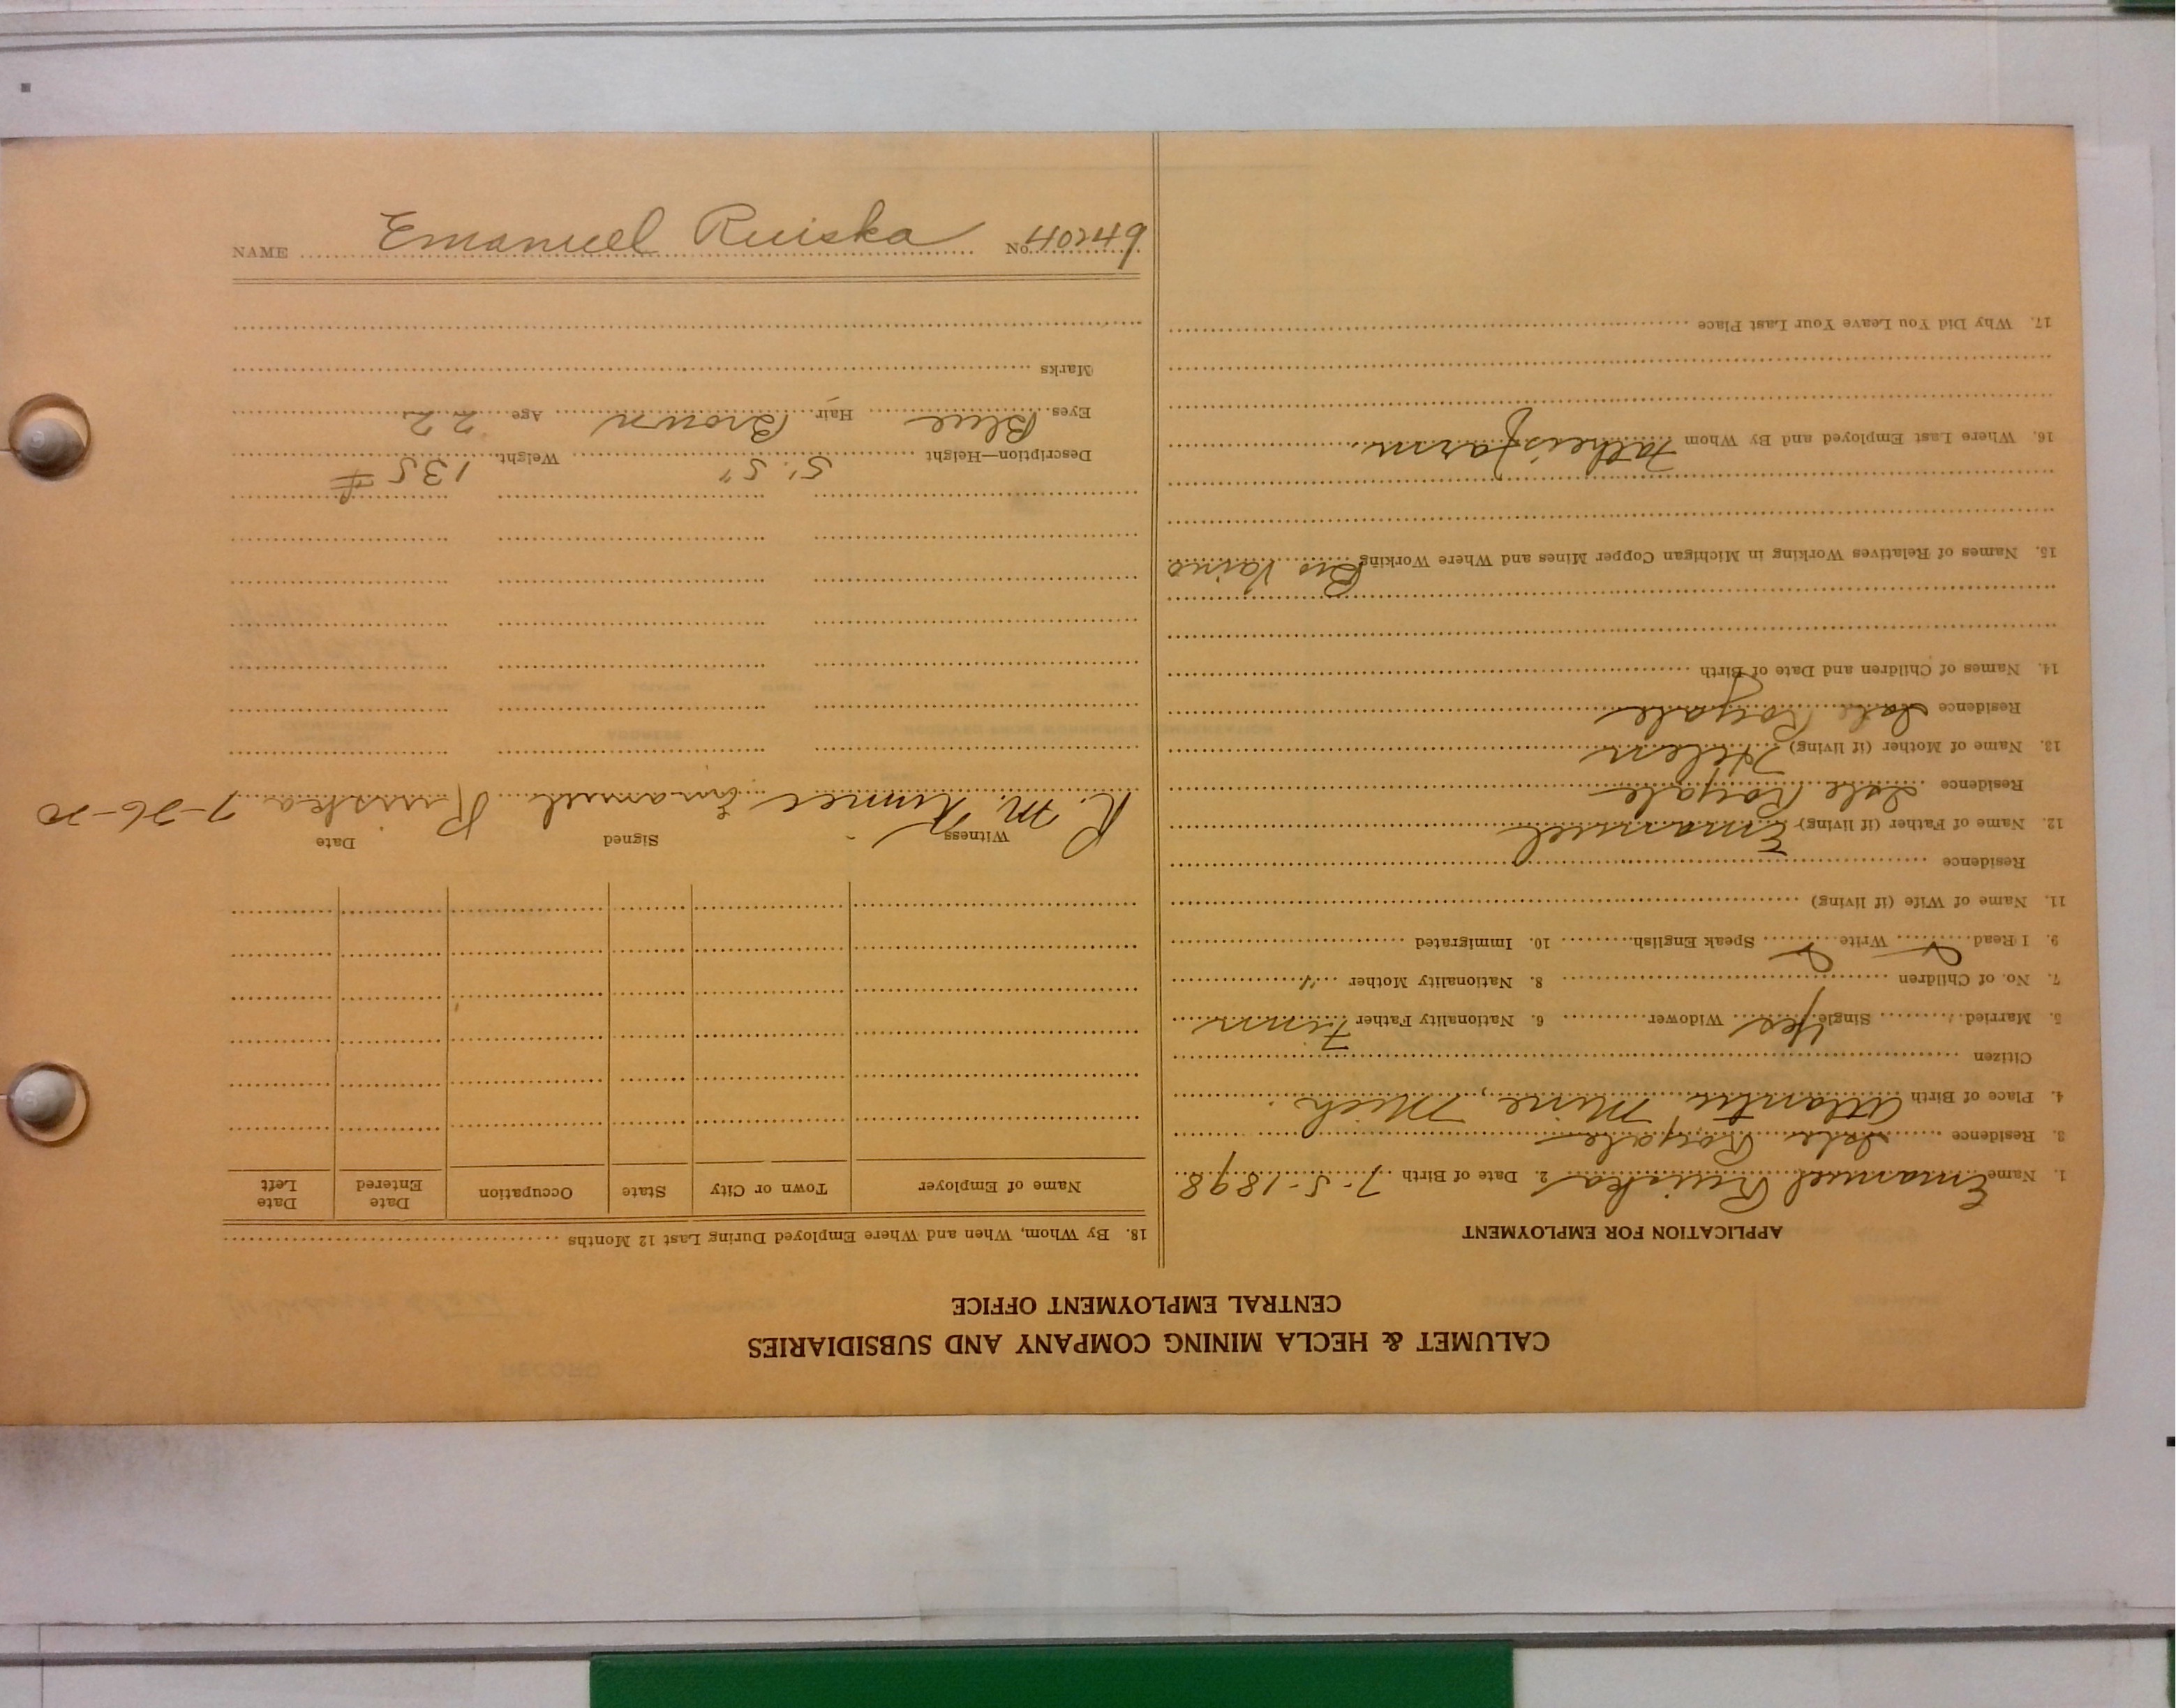 CALUMET & HECLA MINING COMPANY AND SUBSIDIARIES
CENTRAL EMPLOYMENT OFFICE
APPLICATION FOR EMPLOYMENT
1. Name Emanuel Ruiska 2. Date of Birth 7-5-1898
3. Residence Isle Royale
4. Place of Birth Atlantic Mine, Mich.
Citizen
5. Married Single Yes Widower 6. Nationality Father Finn
7. No. of Children 8. Nationality Mother "
9. I Read Write Speak English 10. Immigrated
11. Name of Wife (if living)
Residence
12. Name of Father (if living) Emanuel
Residence Isle Royale
13. Name of Mother (if living) Helen
Residence Isle Royale
14. Names of Children and Date of Birth
15. Names of Relatives Working in Michigan Copper Mines and Where Working Bro Vaino
16. Where Last Employed and By Whom Father's farm.
17. Why Did You Leave Your Last Place
18. By Whom, When and Where Employed During Last 12 Months
Name of Employer Town or City State Occupation Date Entered Date Left
Witness Signed Date
R. M. Emanuel Ruiska 7-26-20
Description—Height 5' 5" Weight 135 #
Eyes Blue Hair Brown Age 22
Marks
NAME Emanuel Ruiska No. 40249